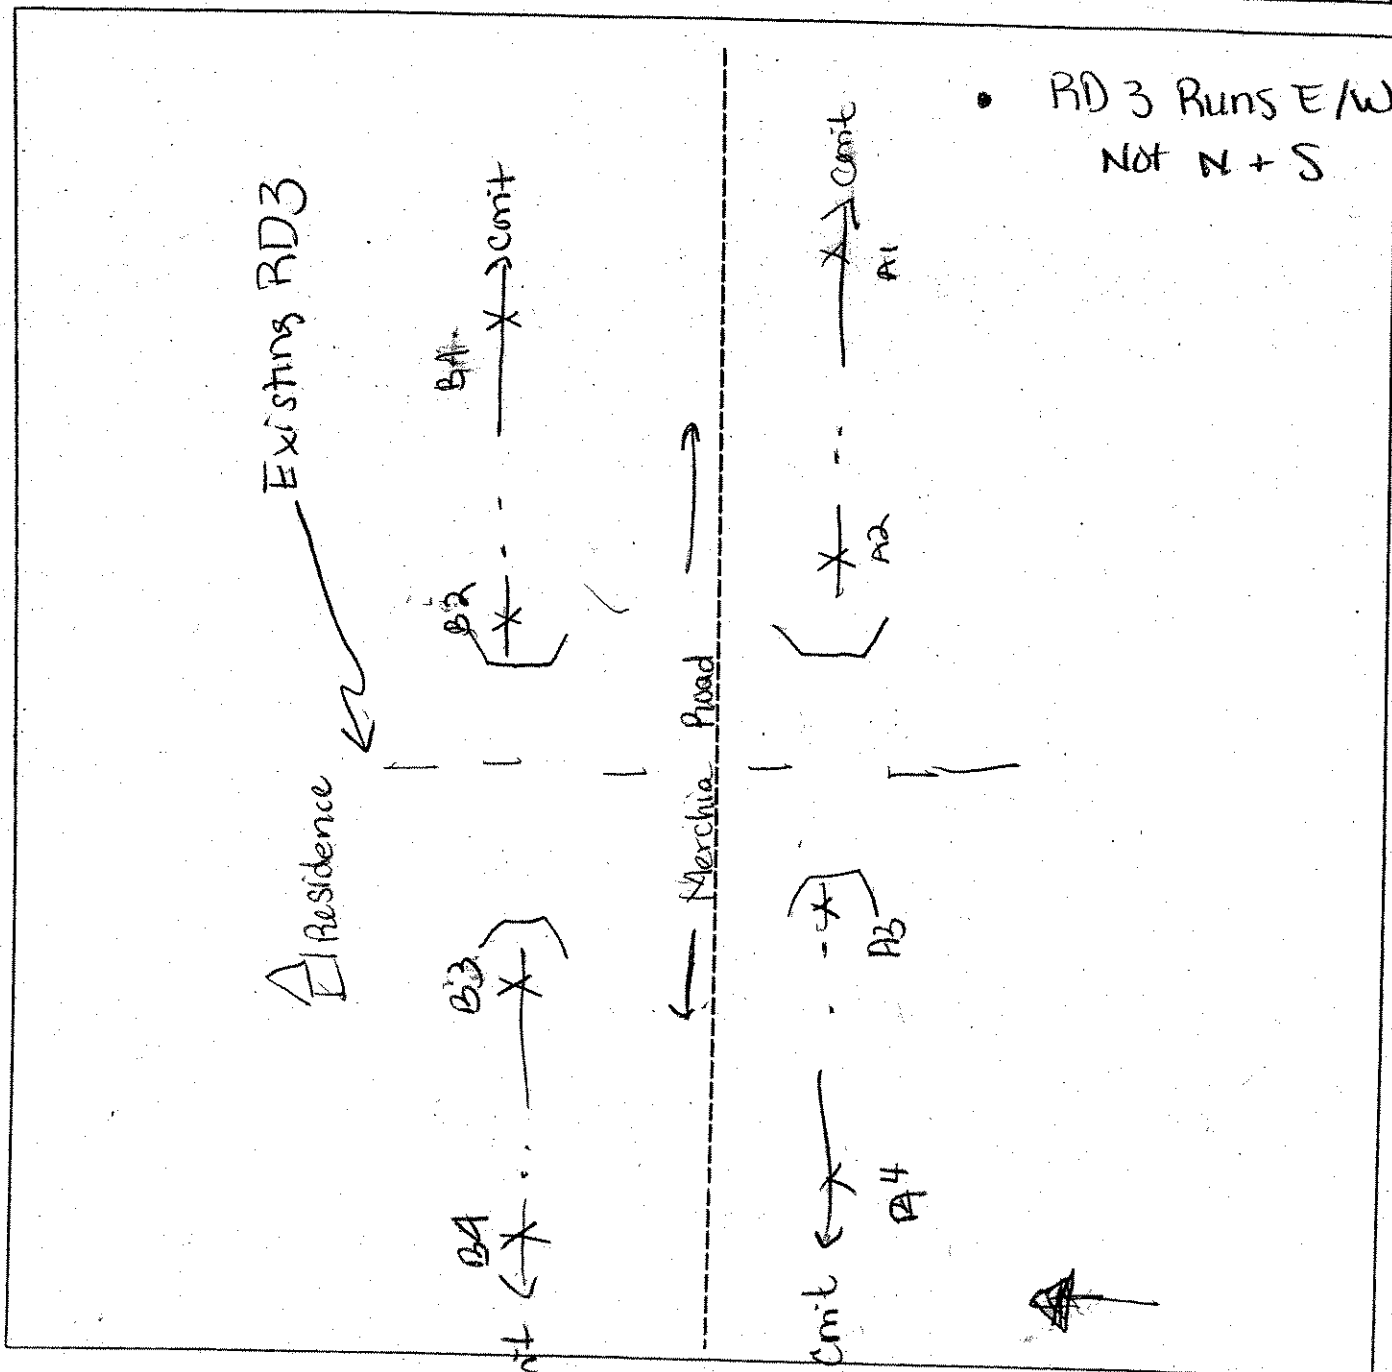 • RD 3 Runs E/W
Not N + S
Existing RD3
Residence
cont
B1
B2
B3
B4
Merchia Road
cont
A1
A2
A3
A4